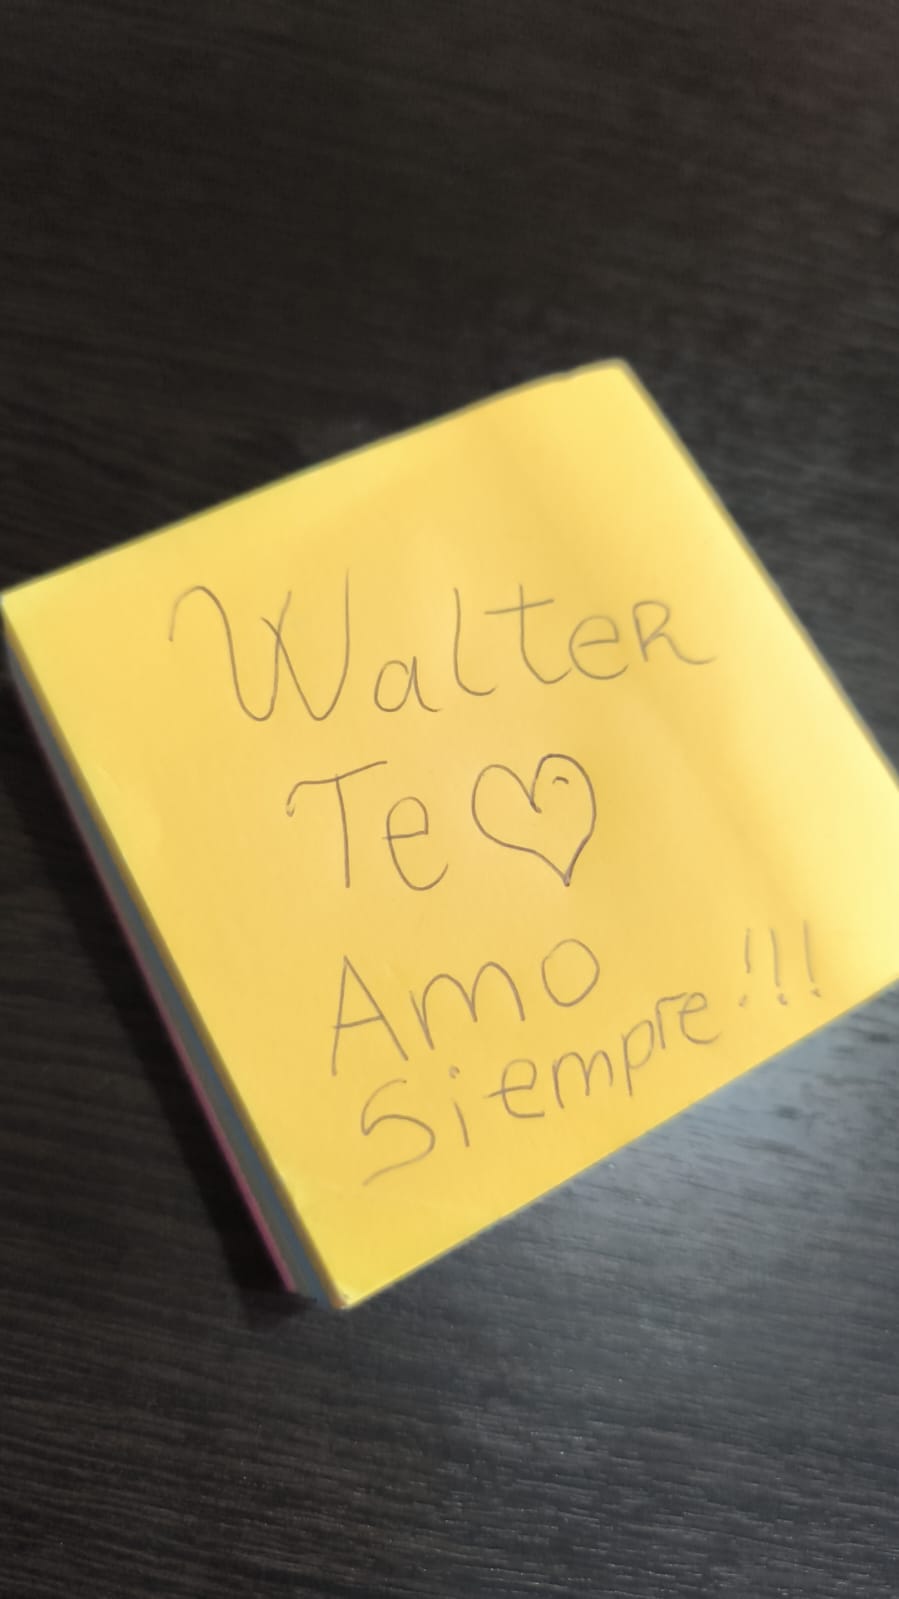 Walter
Te ♡
Amo
Siempre!!!